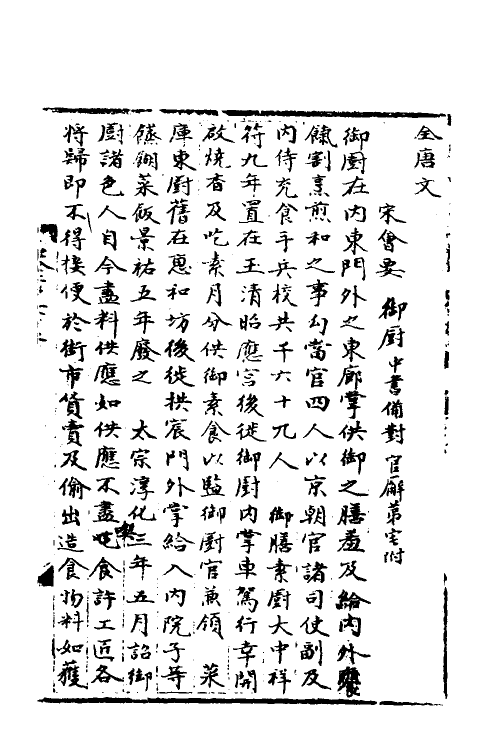 全唐文
宋會要 御厨 中書備對 官廨第宅附
御厨在内東門外之東廊掌供御之膳羞及給内外饔
餼割烹煎和之事勾當官四人以京朝官諸司使副及
内侍充食手兵校共千六十九人 御膳素厨大中祥
符九年置在玉清昭應宫後徙御厨内掌車駕行幸開
啟燒香及吃素月分供御素食以監御厨官兼領 菜
庫東厨舊在惠和坊後徙拱宸門外掌給入内院子等
餻餬菜飯景祐五年廢之 太宗淳化三年五月詔御
厨諸色人自今盡料供應如供應不盡喫食許工匠各
將歸即不得接便於街市貨賣及偷出造食物料如獲